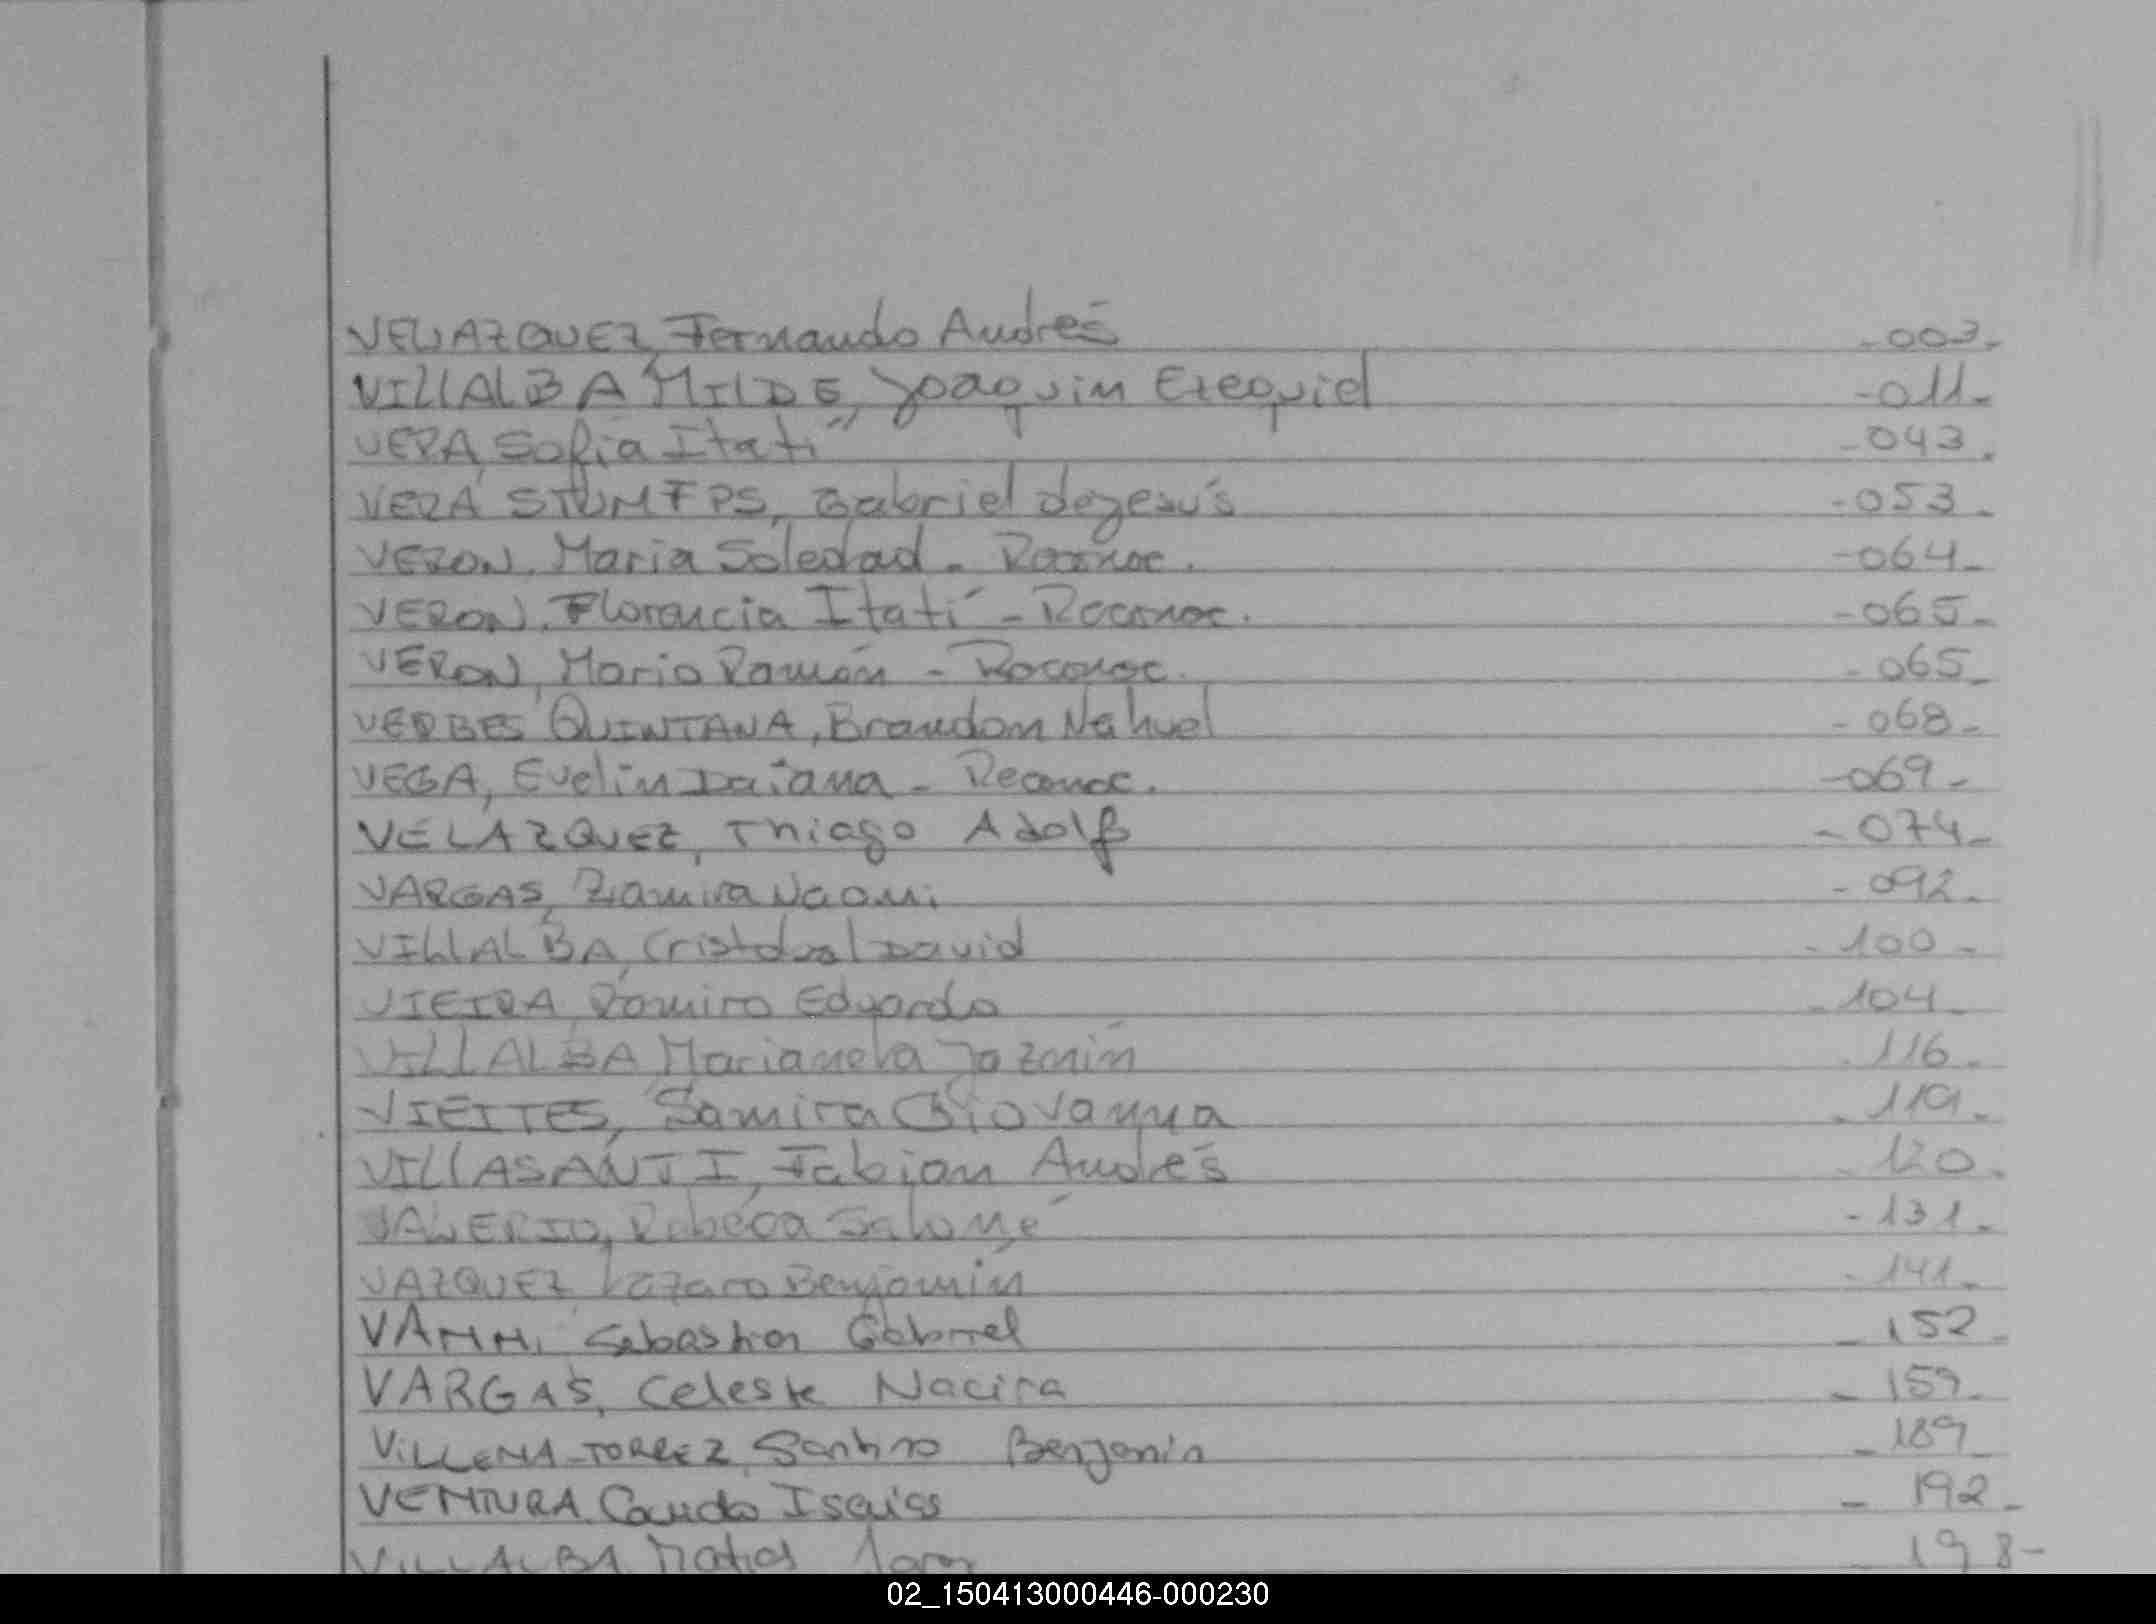 VELAZQUEZ, Fernando Andrés -003-
VILLALBA MILDE, Joaquin Ezequiel -011-
VERA, Sofia Itatí -043-
VERA STUMFPS, Gabriel dejesús -053-
VERON, Maria Soledad - Reconoc. -064-
VERON, Florencia Itatí - Reconoc. -065-
VERON, Mario Ramón - Reconoc. -065-
VERBES QUINTANA, Brandon Nahuel -068-
VEGA, Evelin Daiana - Reconoc. -069-
VELAZQUEZ, Thiago Adolfo -074-
VARGAS, Ziamira Naomi -092-
VILLALBA, Cristobal David -100-
VIEIRA, Ramiro Eduardo -104-
VILLALBA, Marianela Jazmin -116-
VIEITES, Samira Giovanna -119-
VILLASANTI, Fabian Andrés -120-
VALERIO, Rebeca Salomé -131-
VAZQUEZ Lazaro Benjamin -141-
Sebastian Gabriel -152-
VARGAS, Celeste Nacira -159-
VILLENA-TORREZ, Santino Benjamin -189-
VENTURA -192-
VILLALBA -198-
02_150413000446-000230